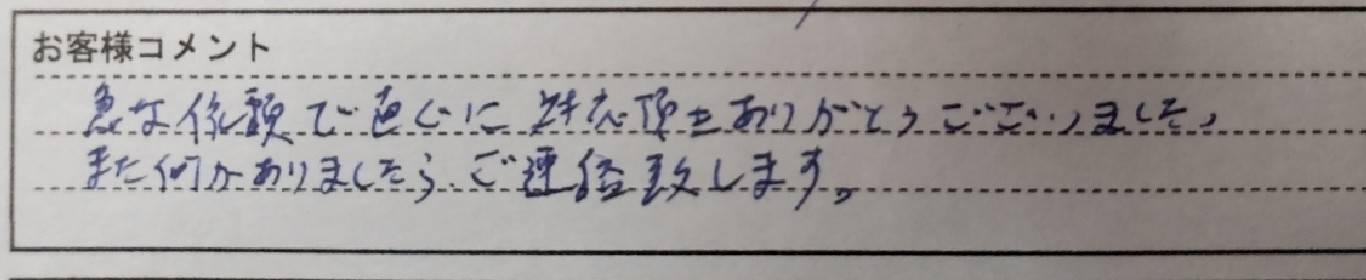 お客様コメント
急な依頼で直ぐに対応頂きありがとうございました。
また何かありましたら、ご連絡致します。